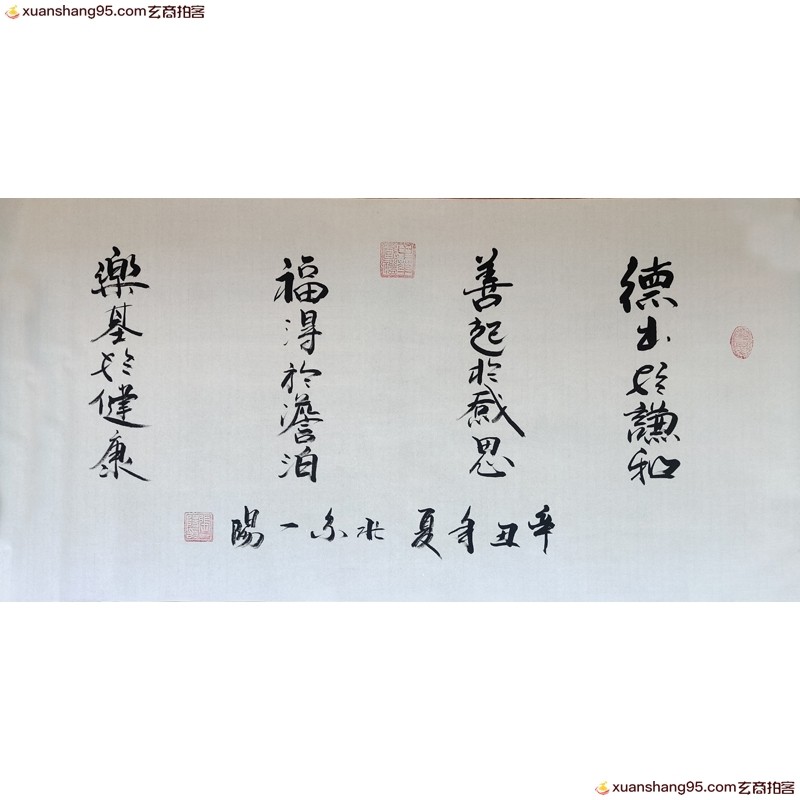 xuanshang95.com玄商拍客
xuanshang95.com玄商拍客
德出於謙和
善起於感恩
福得於澹泊
樂基於健康
辛丑年夏 北京一陽
xuanshang95.com玄商拍客